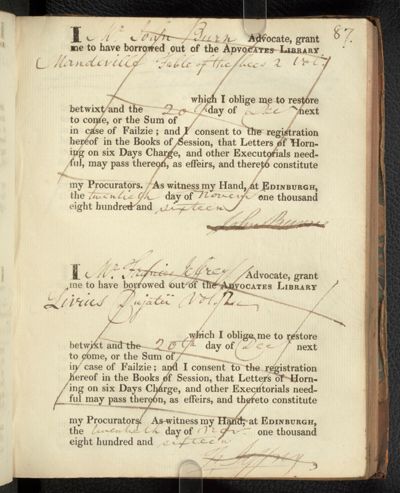 87.
I Mr John Burn Advocate, grant
me to have borrowed out of the ADVOCATES LIBRARY
Mandeville Fable of the bees 2 vol
which I oblige me to restore
betwixt and the 20th day of Dec next
to come, or the Sum of
in case of Failzie; and I consent to the registration
hereof in the Books of Session, that Letters of Horn-
ing on six Days Charge, and other Executorials need-
ful, may pass thereon, as effeirs, and thereto constitute
my Procurators. As witness my Hand, at EDINBURGH,
the twentieth day of Novem one thousand
eight hundred and sixteen
John Burn
I Mr Advocate, grant
me to have borrowed out of the ADVOCATES LIBRARY
Livius vol. 2
which I oblige me to restore
betwixt and the 20th day of Dec next
to come, or the Sum of
in case of Failzie; and I consent to the registration
hereof in the Books of Session, that Letters of Horn-
ing on six Days Charge, and other Executorials need-
ful may pass thereon, as effeirs, and thereto constitute
my Procurators. As witness my Hand, at EDINBURGH,
the twentieth day of Novr one thousand
eight hundred and sixteen